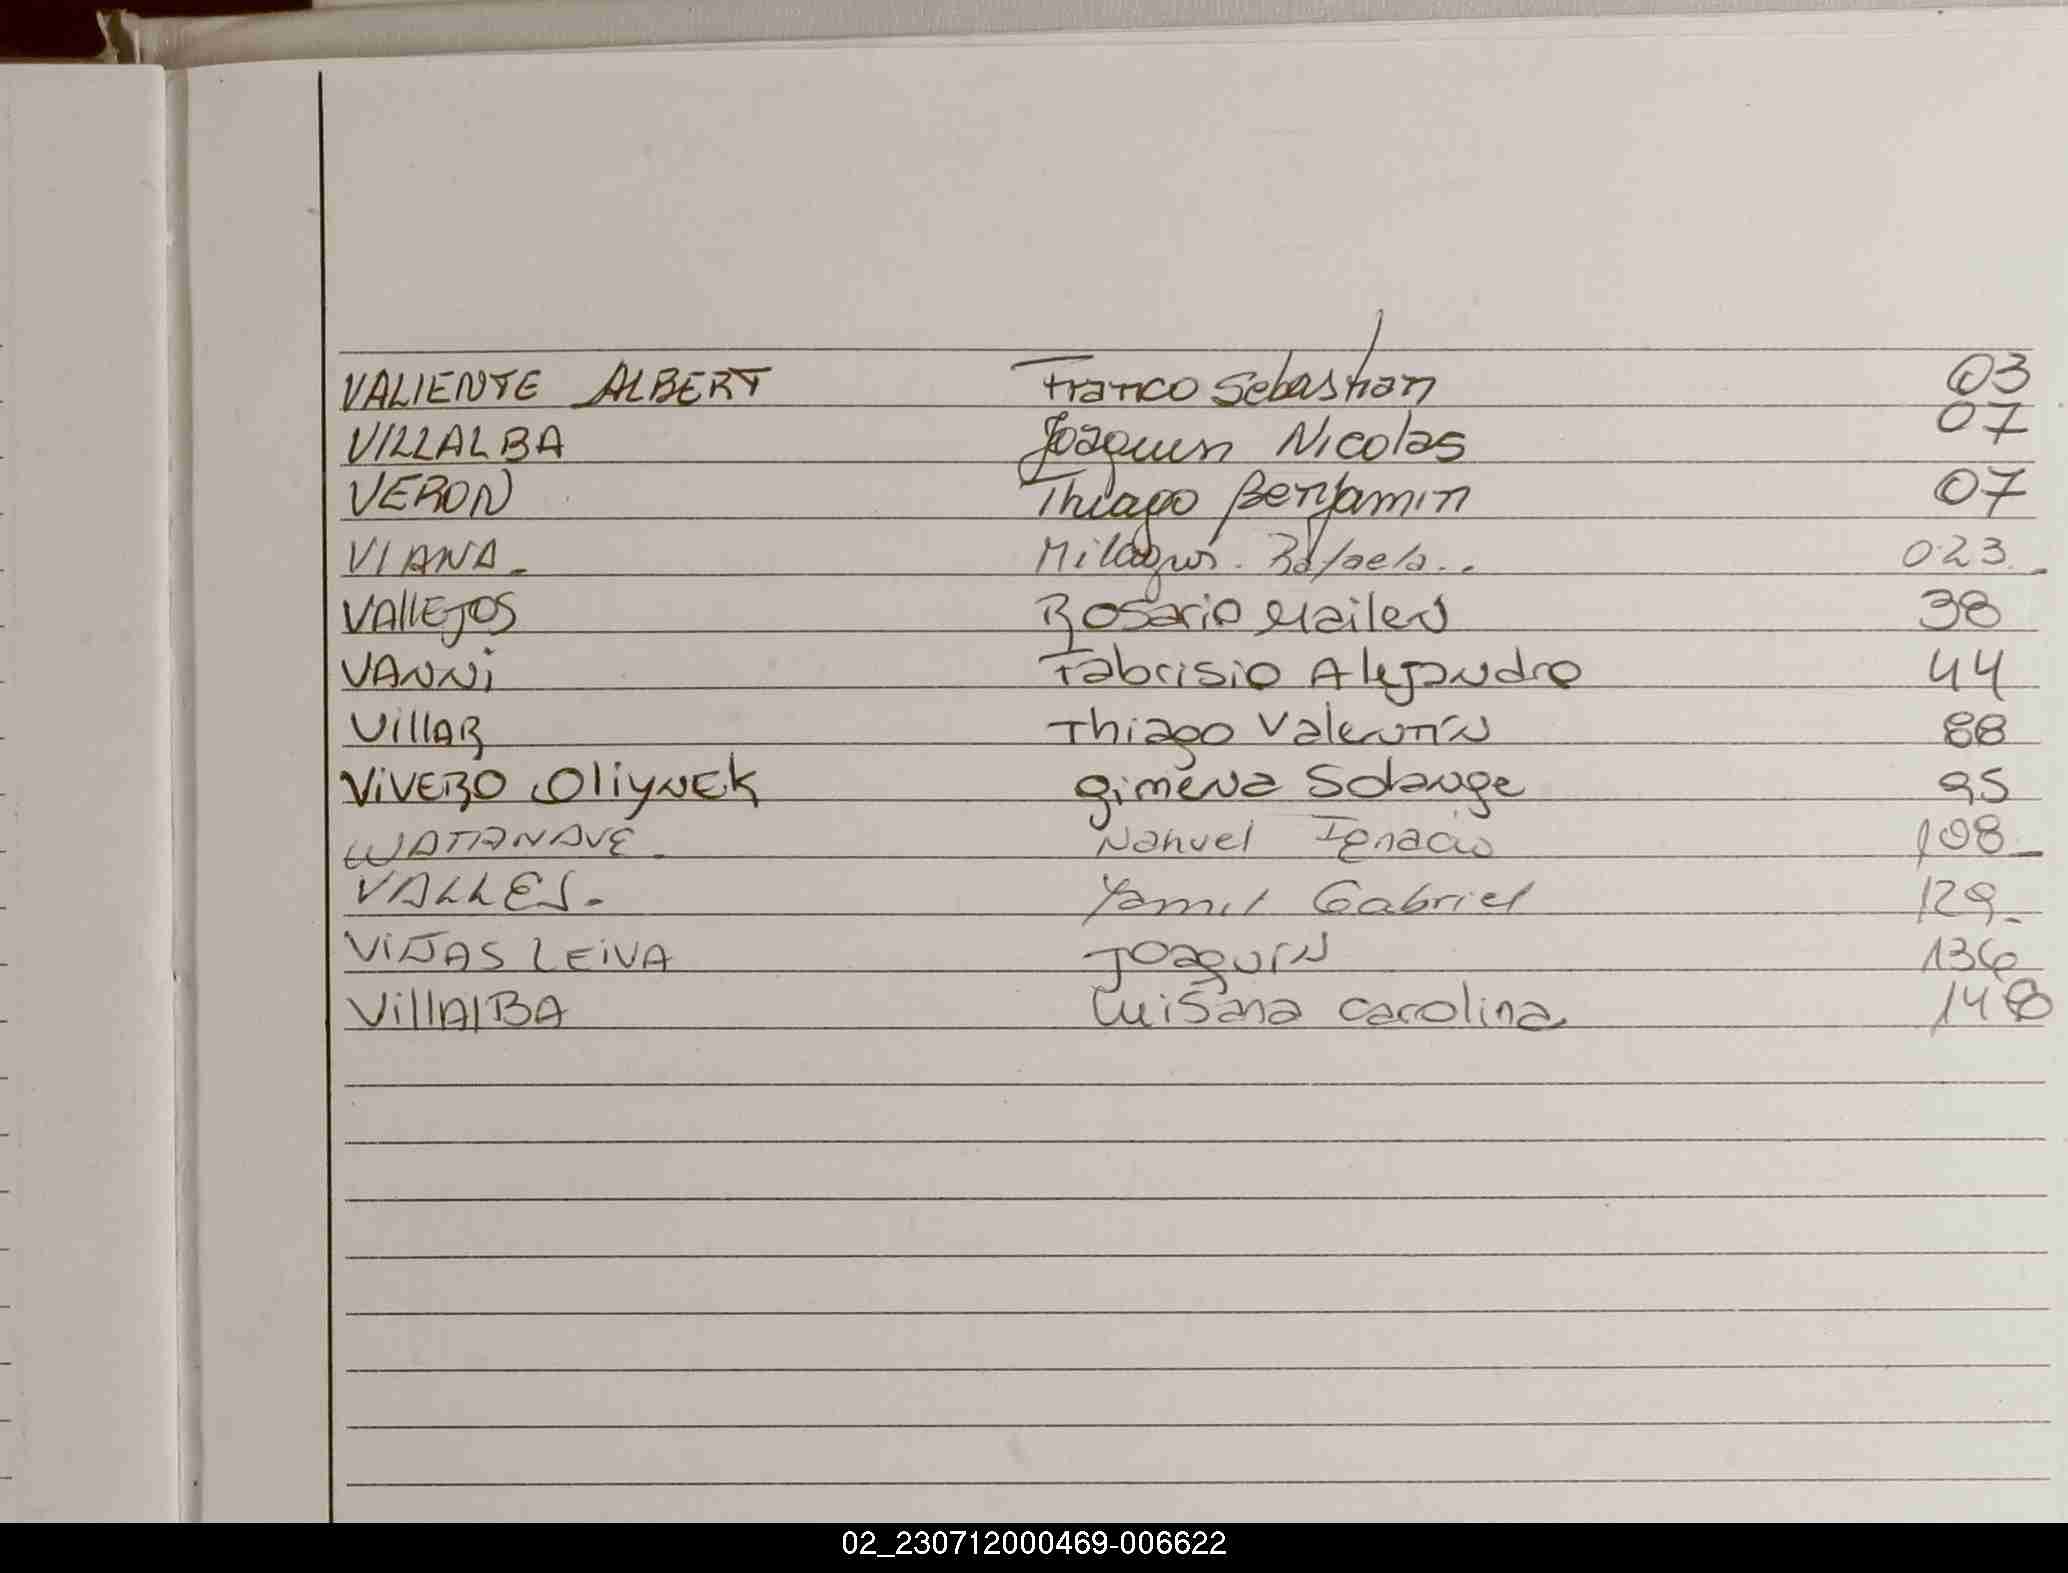 VALIENTE ALBERT Franco Sebastian 03
VILLALBA Joaquin Nicolas 07
VERON Thiago Benjamin 07
VIANA. Milagros. Rafaela.. 023.
VAllEJOS Rosario Mailen 38
VANNi Fabrisio Alejandro 44
VillAR Thiago Valentín 88
ViVERO OliyNEK gimena Solange 95
WATANAVE. Nahuel Ignacio 108
VALLES. Yamil Gabriel 129.
ViÑAS LEiVA Joaquín 136
VillAlBA Luisana Carolina 148
02_230712000469-006622